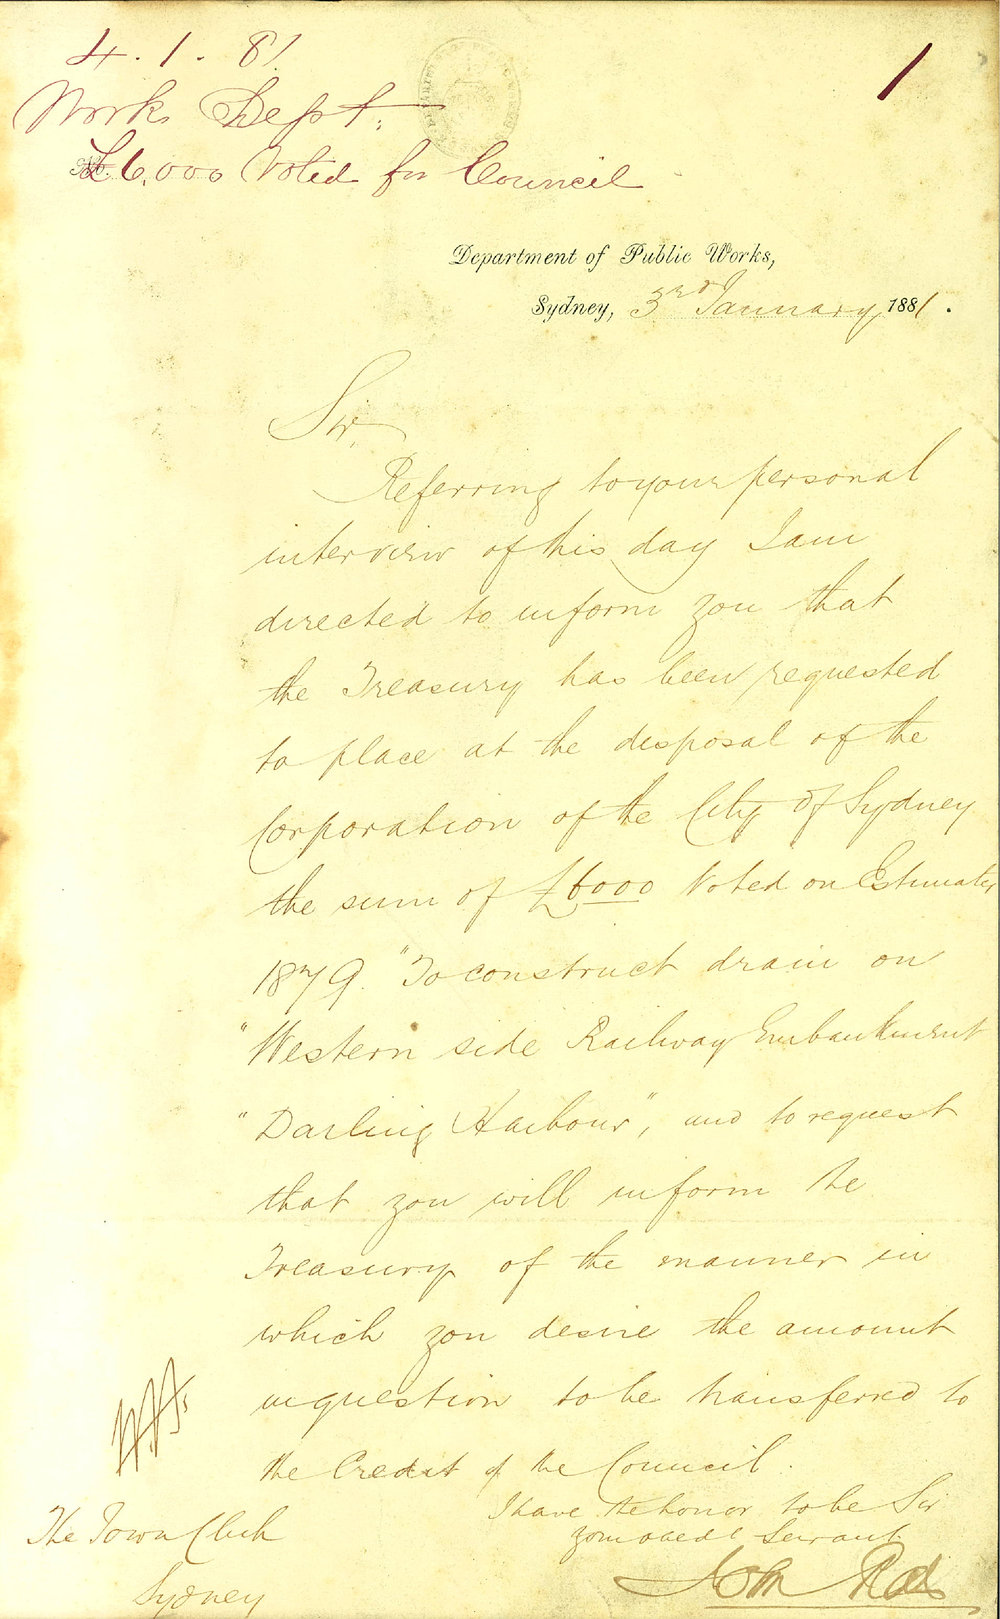 4.1.81.
1
Works Dept.
£6,000 Voted for Council
Department of Public Works,
Sydney, 3rd January 1881.
Sir,
Referring to your personal
interview of this day I am
directed to inform you that
the Treasury has been requested
to place at the disposal of the
Corporation of the City of Sydney
the sum of £6000 Voted on Estimates
1879. "To construct drain on
"Western side Railway Embankment
"Darling Harbour", and to request
that you will inform the
Treasury of the manner in
which you desire the amount
in question to be transferred to
the Credit of the Council.
I have the honor to be Sir
your obedt Servant
John Rae
The Town Clerk
Sydney